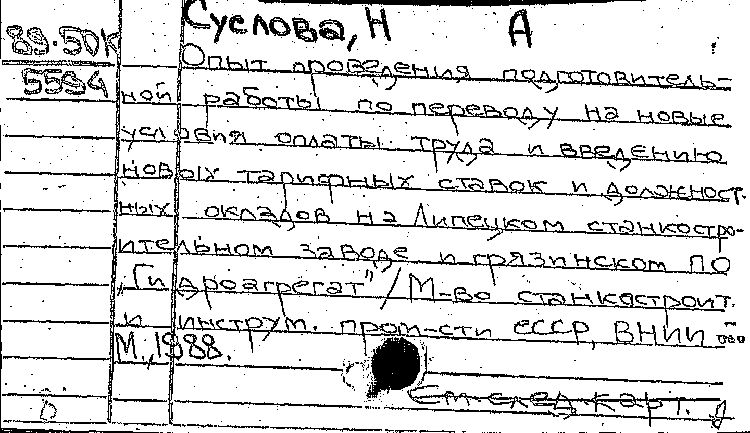 Суслова, Н А
89-50К
5594
Опыт проведения подготовитель-
ной работы по переводу на новые
условия оплаты труда и введению
новых тарифных ставок и должност-
ных окладов на Липецком станкостро-
ительном заводе и грязинском ПО
„Гидроагрегат"/М-во станкостроит.
и инструм. пром-сти СССР, ВНИИ
М., 1988.
См. след. карт.